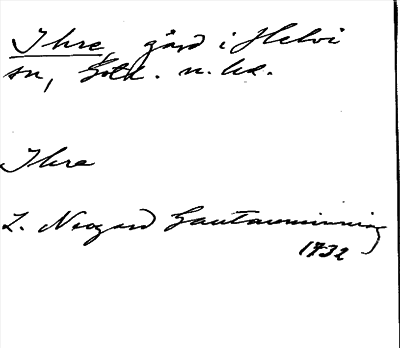 Ihre, gård i Helvi
sn, Gotl. n. hd.
Ihre
L. Neogard Gautauminning
1732